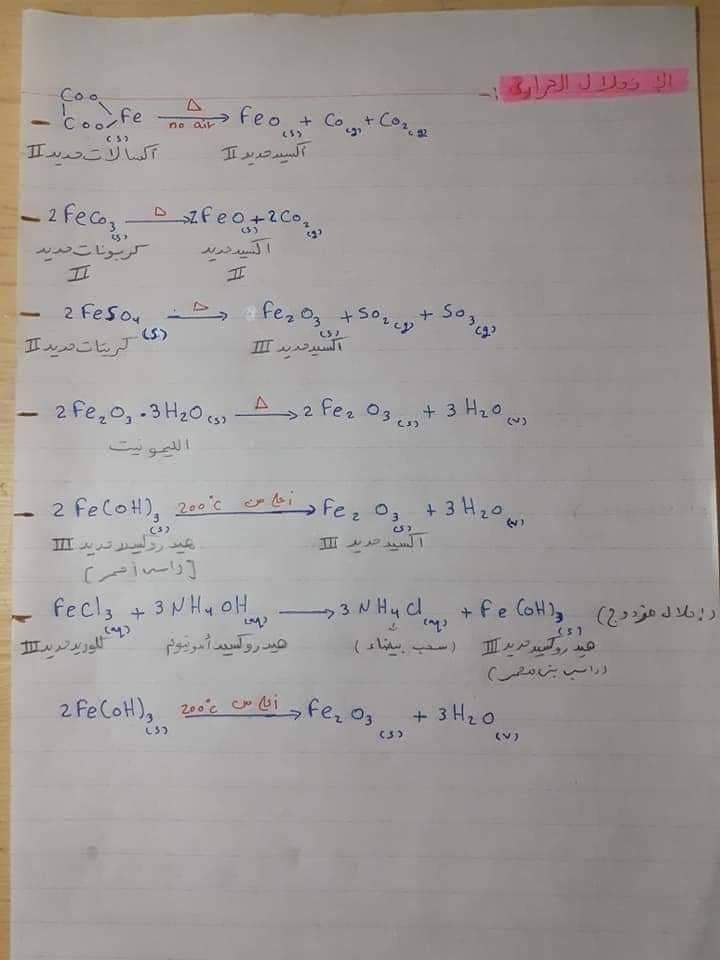 الإنحلال الحراري :-
- COO COO Fe (s) —Δ no air→ FeO (s) + Co (g) + Co₂ (g)
أكسالات حديد II أكسيد حديد II
- 2FeCo₃ (s) —Δ→ 2FeO (s) + 2Co₂ (g)
كربونات حديد II أكسيد حديد II
- 2FeSO₄ (s) —Δ→ Fe₂O₃ (s) + So₂ (g) + So₃ (g)
كبريتات حديد II أكسيد حديد III
- 2Fe₂O₃·3H₂O (s) —Δ→ 2Fe₂O₃ (s) + 3H₂O (v)
الليمونيت
- 2Fe(OH)₃ (s) —أعلى من 200°c→ Fe₂O₃ (s) + 3H₂O (v)
هيدروكسيد حديد III أكسيد حديد III
- FeCl₃ (aq) + 3NH₄OH (aq) → 3NH₄Cl (aq) + Fe(OH)₃ (s) (إحلال مزدوج)
كلوريد حديد III هيدروكسيد أمونيوم (سحب بيضاء) هيدروكسيد حديد III
(راسب بني محمر)
2Fe(OH)₃ (s) —أعلى من 200°c→ Fe₂O₃ (s) + 3H₂O (v)